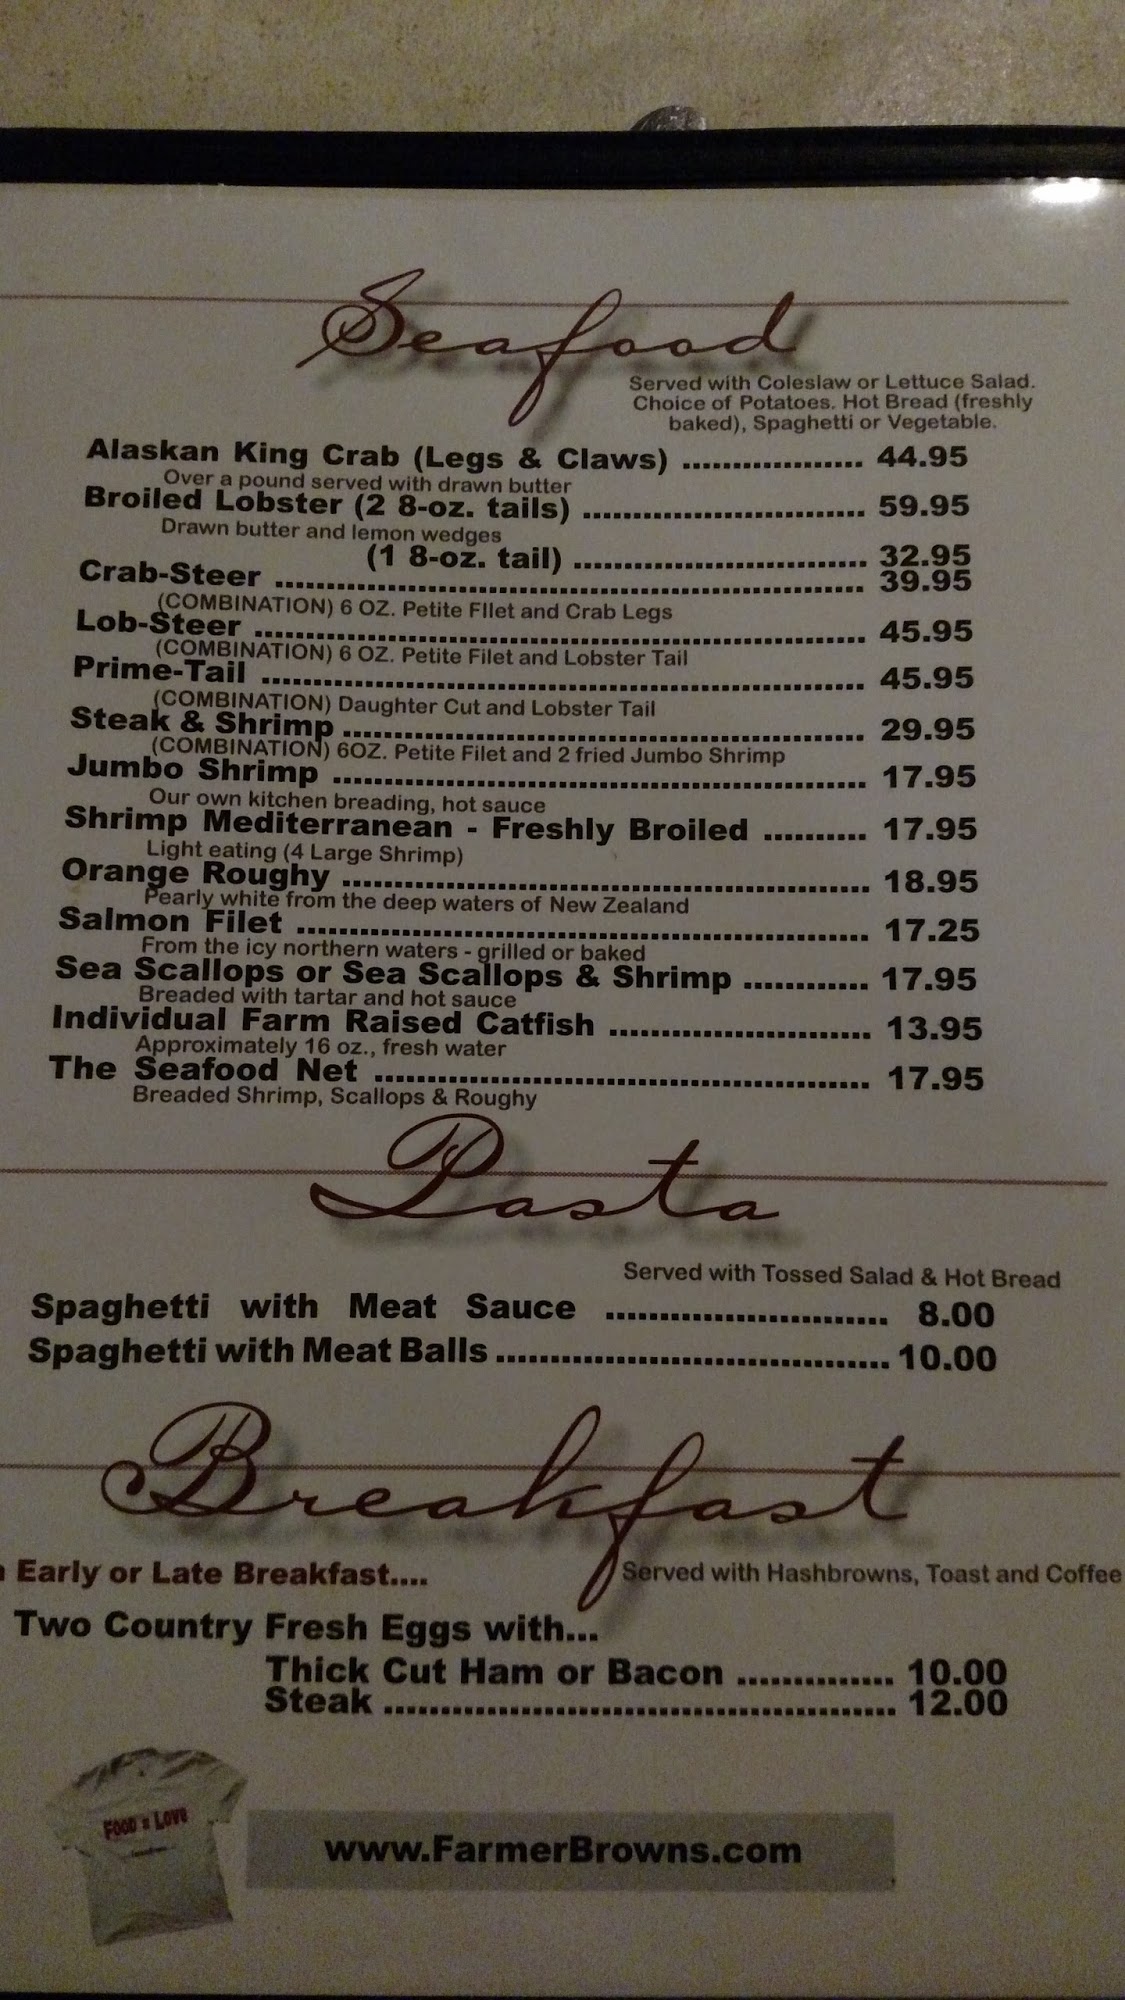 Seafood
Served with Coleslaw or Lettuce Salad.
Choice of Potatoes. Hot Bread (freshly
baked), Spaghetti or Vegetable.
Alaskan King Crab (Legs & Claws) .................. 44.95
Over a pound served with drawn butter
Broiled Lobster (2 8-oz. tails) ............................ 59.95
Drawn butter and lemon wedges
(1 8-oz. tail) ............................. 32.95
Crab-Steer .......................................................... 39.95
(COMBINATION) 6 OZ. Petite FIlet and Crab Legs
Lob-Steer ............................................................ 45.95
(COMBINATION) 6 OZ. Petite Filet and Lobster Tail
Prime-Tail ........................................................... 45.95
(COMBINATION) Daughter Cut and Lobster Tail
Steak & Shrimp ................................................... 29.95
(COMBINATION) 6OZ. Petite Filet and 2 fried Jumbo Shrimp
Jumbo Shrimp .................................................... 17.95
Our own kitchen breading, hot sauce
Shrimp Mediterranean - Freshly Broiled .......... 17.95
Light eating (4 Large Shrimp)
Orange Roughy ................................................... 18.95
Pearly white from the deep waters of New Zealand
Salmon Filet ........................................................ 17.25
From the icy northern waters - grilled or baked
Sea Scallops or Sea Scallops & Shrimp ............ 17.95
Breaded with tartar and hot sauce
Individual Farm Raised Catfish .......................... 13.95
Approximately 16 oz., fresh water
The Seafood Net ................................................ 17.95
Breaded Shrimp, Scallops & Roughy
Pasta
Served with Tossed Salad & Hot Bread
Spaghetti with Meat Sauce .......................... 8.00
Spaghetti with Meat Balls .................................... 10.00
Breakfast
Early or Late Breakfast....
Served with Hashbrowns, Toast and Coffee
Two Country Fresh Eggs with...
Thick Cut Ham or Bacon .............. 10.00
Steak ............................................. 12.00
Food = Love
www.FarmerBrowns.com